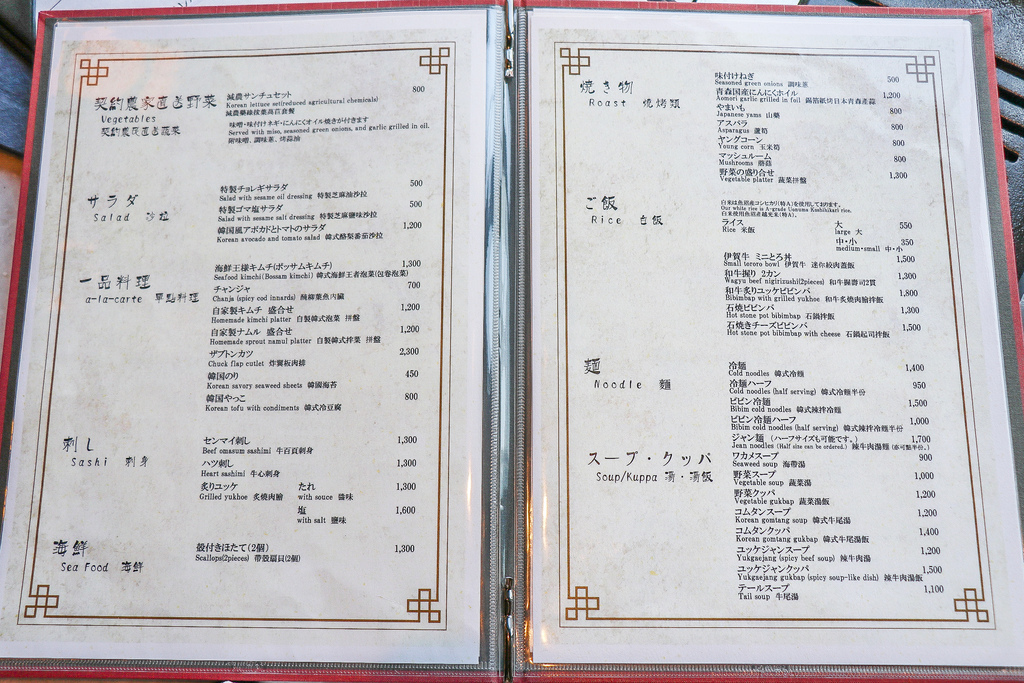 契約農家直送野菜
Vegetables
契約農民直送蔬菜
減農サンチュセット 800
Korean lettuce set(reduced agricultural chemicals)
減農藥綠拔葉萵苣套餐
味噌・味付けネギ・にんにくオイル焼きが付きます
Served with miso, seasoned green onions, and garlic grilled in oil.
附味噌、調味蔥、烤蒜油
サラダ
Salad 沙拉
特製チョレギサラダ 500
Salad with sesame oil dressing 特製芝麻油沙拉
特製ゴマ塩サラダ 500
Salad with sesame salt dressing 特製芝麻鹽味沙拉
韓国風アボカドとトマトのサラダ 1,200
Korean avocado and tomato salad 韓式酪梨番茄沙拉
一品料理
a-la-carte 單點料理
海鮮王様キムチ(ボッサムキムチ) 1,300
Seafood kimchi(Bossam kimchi) 韓式海鮮王者泡菜(包卷泡菜)
チャンジャ 700
Chanja (spicy cod innards) 醃鱈魚內臟
自家製キムチ 盛合せ 1,200
Homemade kimchi platter 自製韓式泡菜 拼盤
自家製ナムル 盛合せ 1,200
Homemade sprout namul platter 自製韓式拌菜 拼盤
ザブトンカツ 2,300
Chuck flap cutlet 炸翼板肉排
韓国のり 450
Korean savory seaweed sheets 韓國海苔
韓国やっこ 800
Korean tofu with condiments 韓式冷豆腐
刺し
Sashi 刺身
センマイ刺し 1,300
Beef omasum sashimi 牛百頁刺身
ハツ刺し 1,300
Heart sashimi 牛心刺身
炙りユッケ たれ 1,300
Grilled yukhoe 炙燒肉膾 with souce 醬味
塩 1,600
with salt 鹽味
海鮮
Sea Food 海鮮
殻付きほたて(2個) 1,300
Scallops(2pieces) 帶殼扇貝(2個)
焼き物
Roast 燒烤類
味付けねぎ 500
Seasoned green onions 調味蔥
青森国産にんにくホイル 1,200
Aomori garlic grilled in foil 錫箔紙烤日本青森產蒜
やまいも 800
Japanese yams 山藥
アスパラ 800
Asparagus 蘆筍
ヤングコーン 800
Young corn 玉米筍
マッシュルーム 800
Mushrooms 蘑菇
野菜の盛り合せ 1,300
Vegetable platter 蔬菜拼盤
ご飯
Rice 白飯
白米は魚沼産コシヒカリ(特A)を使用しております。
Our white rice is A-grade Uonuma Koshihikari rice.
白米使用魚沼産越光米(特A)。
ライス 大 550
Rice 米飯 large 大
中・小 350
medium・small 中・小
伊賀牛 ミニとろ丼 1,500
Small tororo bowl 伊賀牛 迷你絞肉蓋飯
和牛握り 2カン 1,300
Wagyu beef nigirizushi(2pieces) 和牛握壽司2貫
和牛炙りユッケビビンバ 1,800
Bibimbap with grilled yukhoe 和牛炙燒肉膾拌飯
石焼ビビンバ 1,300
Hot stone pot bibimbap 石鍋拌飯
石焼きチーズビビンバ 1,500
Hot stone pot bibimbap with cheese 石鍋起司拌飯
麺
Noodle 麵
冷麺 1,400
Cold noodles 韓式冷麵
冷麺ハーフ 950
Cold noodles (half serving) 韓式冷麵半份
ビビン冷麺 1,500
Bibim cold noodles 韓式辣拌冷麵
ビビン冷麺ハーフ 1,000
Bibim cold noodles (half serving) 韓式辣拌冷麵半份
ジャン麺 (ハーフサイズも可能です。) 1,700
Jean noodles (Half size can be ordered.) 辣牛肉湯麵(亦可點半份。)
スープ・クッパ
Soup/Kuppa 湯・湯飯
ワカメスープ 900
Seaweed soup 海帶湯
野菜スープ 1,000
Vegetable soup 蔬菜湯
野菜クッパ 1,200
Vegetable gukbap 蔬菜湯飯
コムタンスープ 1,200
Korean gomtang soup 韓式牛尾湯
コムタンクッパ 1,400
Korean gomtang gukbap 韓式牛尾湯飯
ユッケジャンスープ 1,200
Yukgaejang (spicy beef soup) 辣牛肉湯
ユッケジャンクッパ 1,500
Yukgaejang gukbap (spicy soup-like dish) 辣牛肉湯飯
テールスープ 1,100
Tail soup 牛尾湯